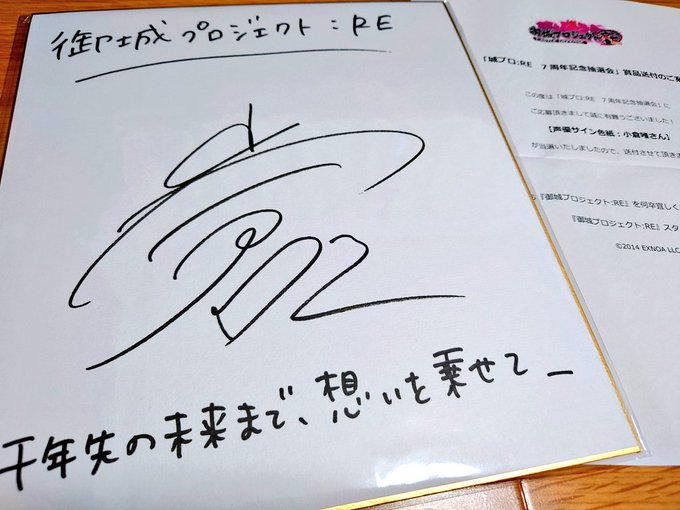 御城プロジェクト:RE
千年先の未来まで、想いを乗せて_
「城プロ:RE 7周年記念抽選会」賞品送付のご
この度は「城プロ:RE 7周年記念抽選会」に
ご応募頂きまして誠に有難うございました!
【声優サイン色紙:小倉唯さん】
が当選いたしましたので、送付させて頂きま
『御城プロジェクト:RE』を何卒宜しく
『御城プロジェクト:RE』スタ
©2014 EXNOA LLC